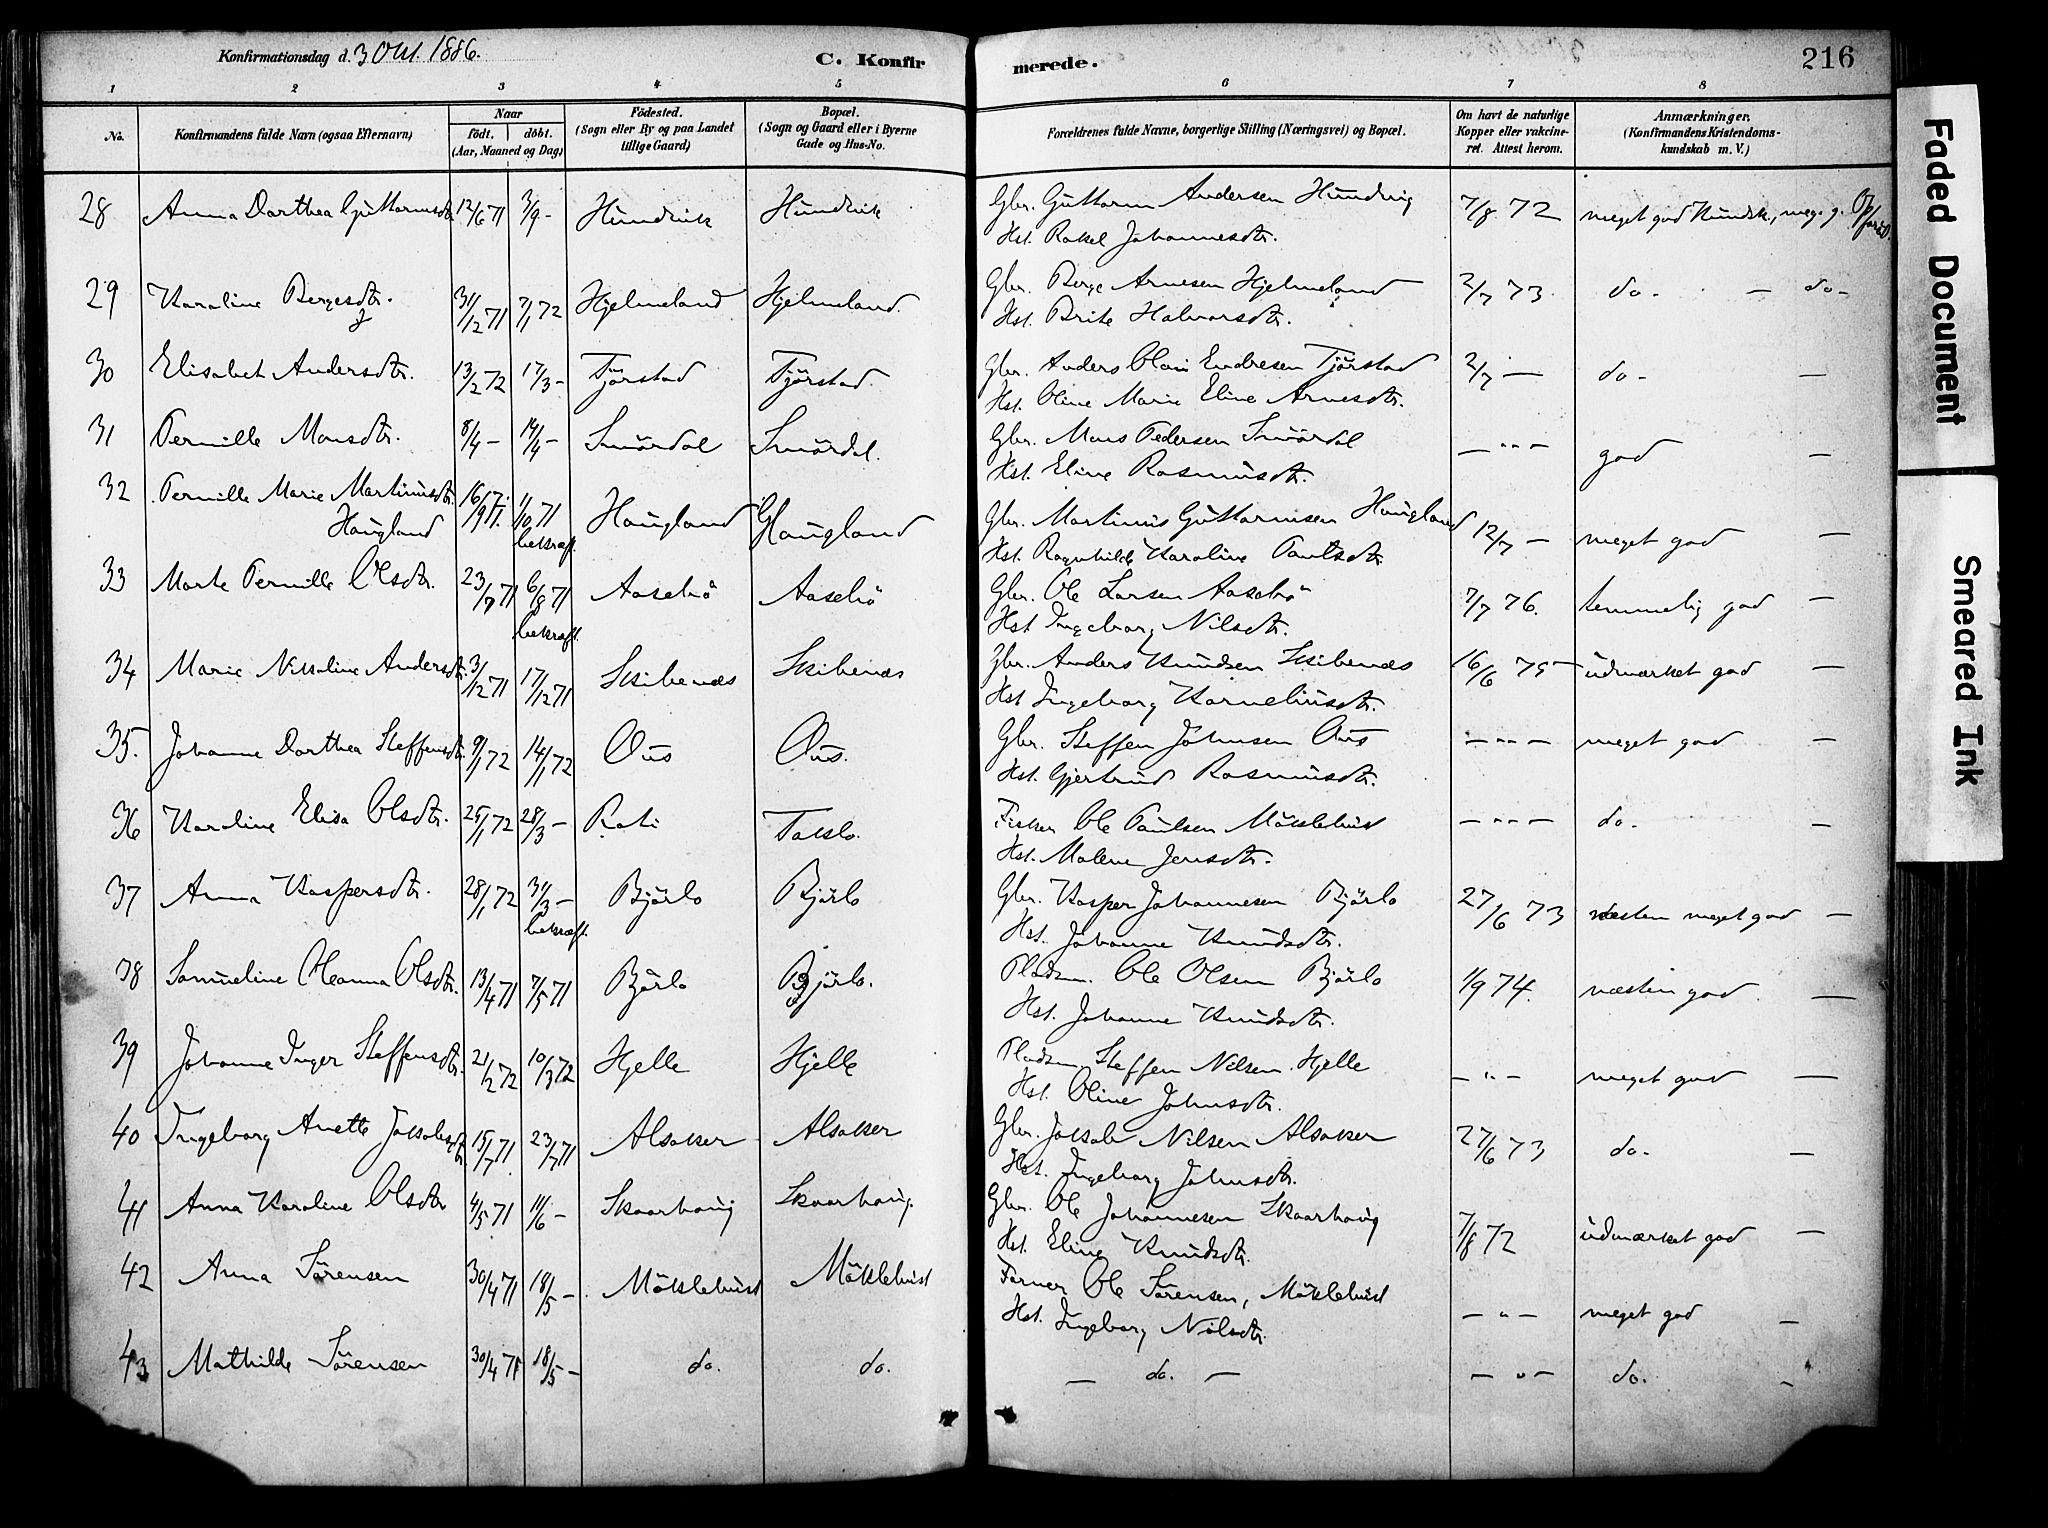 Konfirmationsdag d. 3 Okt. 1886.
C. Konfirmerede.
216
1 2 3 4 5 6 7 8
No.
Konfirmandens fulde Navn (ogsaa Efternavn)
Naar
födt. döbt.
(Aar, Maaned og Dag)
Födested.
(Sogn eller By og paa Landet
tillige Gaard)
Bopæl.
(Sogn og Gaard eller i Byerne
Gade og Hus-No.
Forældrenes fulde Navne, borgerlige Stilling (Næringsvei) og Bopæl.
Om havt de naturlige
Kopper eller vakcine-
ret. Attest herom.
Anmærkninger.
(Konfirmandens Kristendoms-
kundskab m. V.)
28 Anna Dorthea Guttormsdtr. 12/6 71 3/9 - Hundvik Hundvik Gbr. Guttorm Andersen Hundvig 7/8 72 meget god Kundsk., meg. g. Opførsel.
Hst. Rakel Johannesdtr.
29 Karoline Bergesdtr. 31/12 71 7/1 72 Hjelmeland Hjelmeland. Gbr. Berge Arnesen Hjelmeland 2/7 73 do - — do -
Hst. Brite Halvorsdtr.
30 Elisabet Andersdtr. 13/2 72 17/3 - Tjörstad Tjörstad Gbr. Anders Olai Endresen Tjörstad 2/7 — do - —
Hst. Oline Marie Eline Arnesdtr.
31 Pernille Monsdtr. 8/4 - 14/4 - Smördal Smördal. Gbr. Mons Pedersen Smördal — " — god —
Hst. Eline Rasmusdtr.
32 Pernille Marie Martinusdtr. 16/9 71. 1/10 71 Hougland Hougland Gbr. Martinus Guttormsen Hougland 12/7 — meget god —
Hougland bekræft. Hst. Ragnhilde Karoline Paulsdtr.
33 Marte Pernille Olsdtr. 23/7 71 6/8 71 Aasebö Aasebö Gbr. Ole Larsen Aasebö 7/7 76. temmelig god —
bekræft. Hst. Ingeborg Nilsdtr.
34 Marie Nikoline Andersdtr. 3/12 71 17/12 71 Skibenæs Skibenæs Gbr. Anders Knudsen Skibenæs 16/6 75 udmærket god —
Hst Ingeborg Korneliusdtr.
35. Johanne Dorthea Steffensdtr. 9/1 72 14/1 72 Ous Ous. Gbr. Steffen Johnsen Ous — " — meget god —
Hst. Gjertrud Rasmusdtr.
36 Karoline Elisa Olsdtr. 25/1 72 28/3 - Rati Taklo. Fisker Ole Paulsen Möklebust — " — do. —
Hst. Malene Jensdtr.
37 Anna Kaspersdtr. 28/1 72 31/3 - Björlo Björlo Gbr. Kasper Johannesen Bjørlo 27/6 73 næsten meget god —
bekræft. Hst. Johanne Knudsdtr.
38 Samueline Oleanna Olsdtr. 13/4 71 7/5 71 Bjørlo Bjørlo. Pladsm. Ole Olsen Bjørlo 1/9 74. næsten god. —
Hst. Johanne Knudsdtr.
39 Johanne Inger Steffensdtr. 21/2 72 10/3 72 Hjelle Hjelle Pladsm Steffen Nilsen Hjelle — " — meget god —
Hst. Oline Johnsdtr.
40 Ingeborg Anette Jakobsdtr 15/7 71 23/7 71 Alsaker Alsaker Gbr. Jakob Nilsen Alsaker 27/6 73 do. —
Hst. Ingeborg Johnsdtr.
41 Anna Karoline Olsdtr 4/5 71 11/6 - Skaarhaug Skaarhaug. Gbr. Ole Johannesen Skaarhaug 7/8 72 udmærket god —
Hst. Eline Knudsdtr.
42 Anna Sörensen 30/4 71 18/5 - Möklebust Möklebust Ole Sörensen, Möklebust — " — meget god —
Hst. Ingeborg Nilsdtr.
43 Mathilde Sörensen 30/4 71 18/5 - do. do. — do. — — " — do. —
Faded Document
Smeared Ink